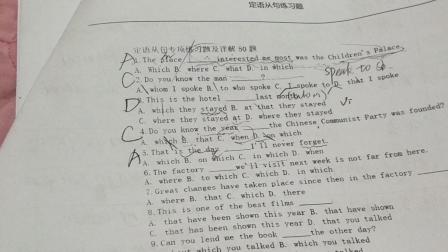 定语从句练习题
定语从句专项练习题及详解 50 题
A 1.The place ____ interested me most was the Children's Palace.
A. Which B. where C. what D. in which
C 2.Do you know the man ____?
speak to sb
A. whom I spoke B. to who spoke C. I spoke to D. that I spoke
D 3.This is the hotel ____ last month.
A. which they stayed B. at that they stayed
C. where they stayed at D. where they stayed
C 4.Do you know the year ____ the Chinese Communist Party was founded?
A. which B. that C. when D. on which
A 5.That is the day ____ I'll never forget.
A. which B. on which C. in which D. when
6.The factory ____ we'll visit next week is not far from here.
A. where B. to which C. which D. in which
7.Great changes have taken place since then in the factory ____
A. where B. that C. which D. there
8.This is one of the best films ____
A. that have been shown this year B. that have shown
C. that has been shown this year D. that you talked
9.Can you lend me the book ____ the other day?
which you talked B. which you talked